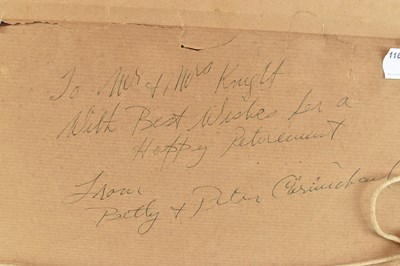 To Mr & Mrs Knight
With Best Wishes for a
Happy Retirement
From
Betty + Peter
116